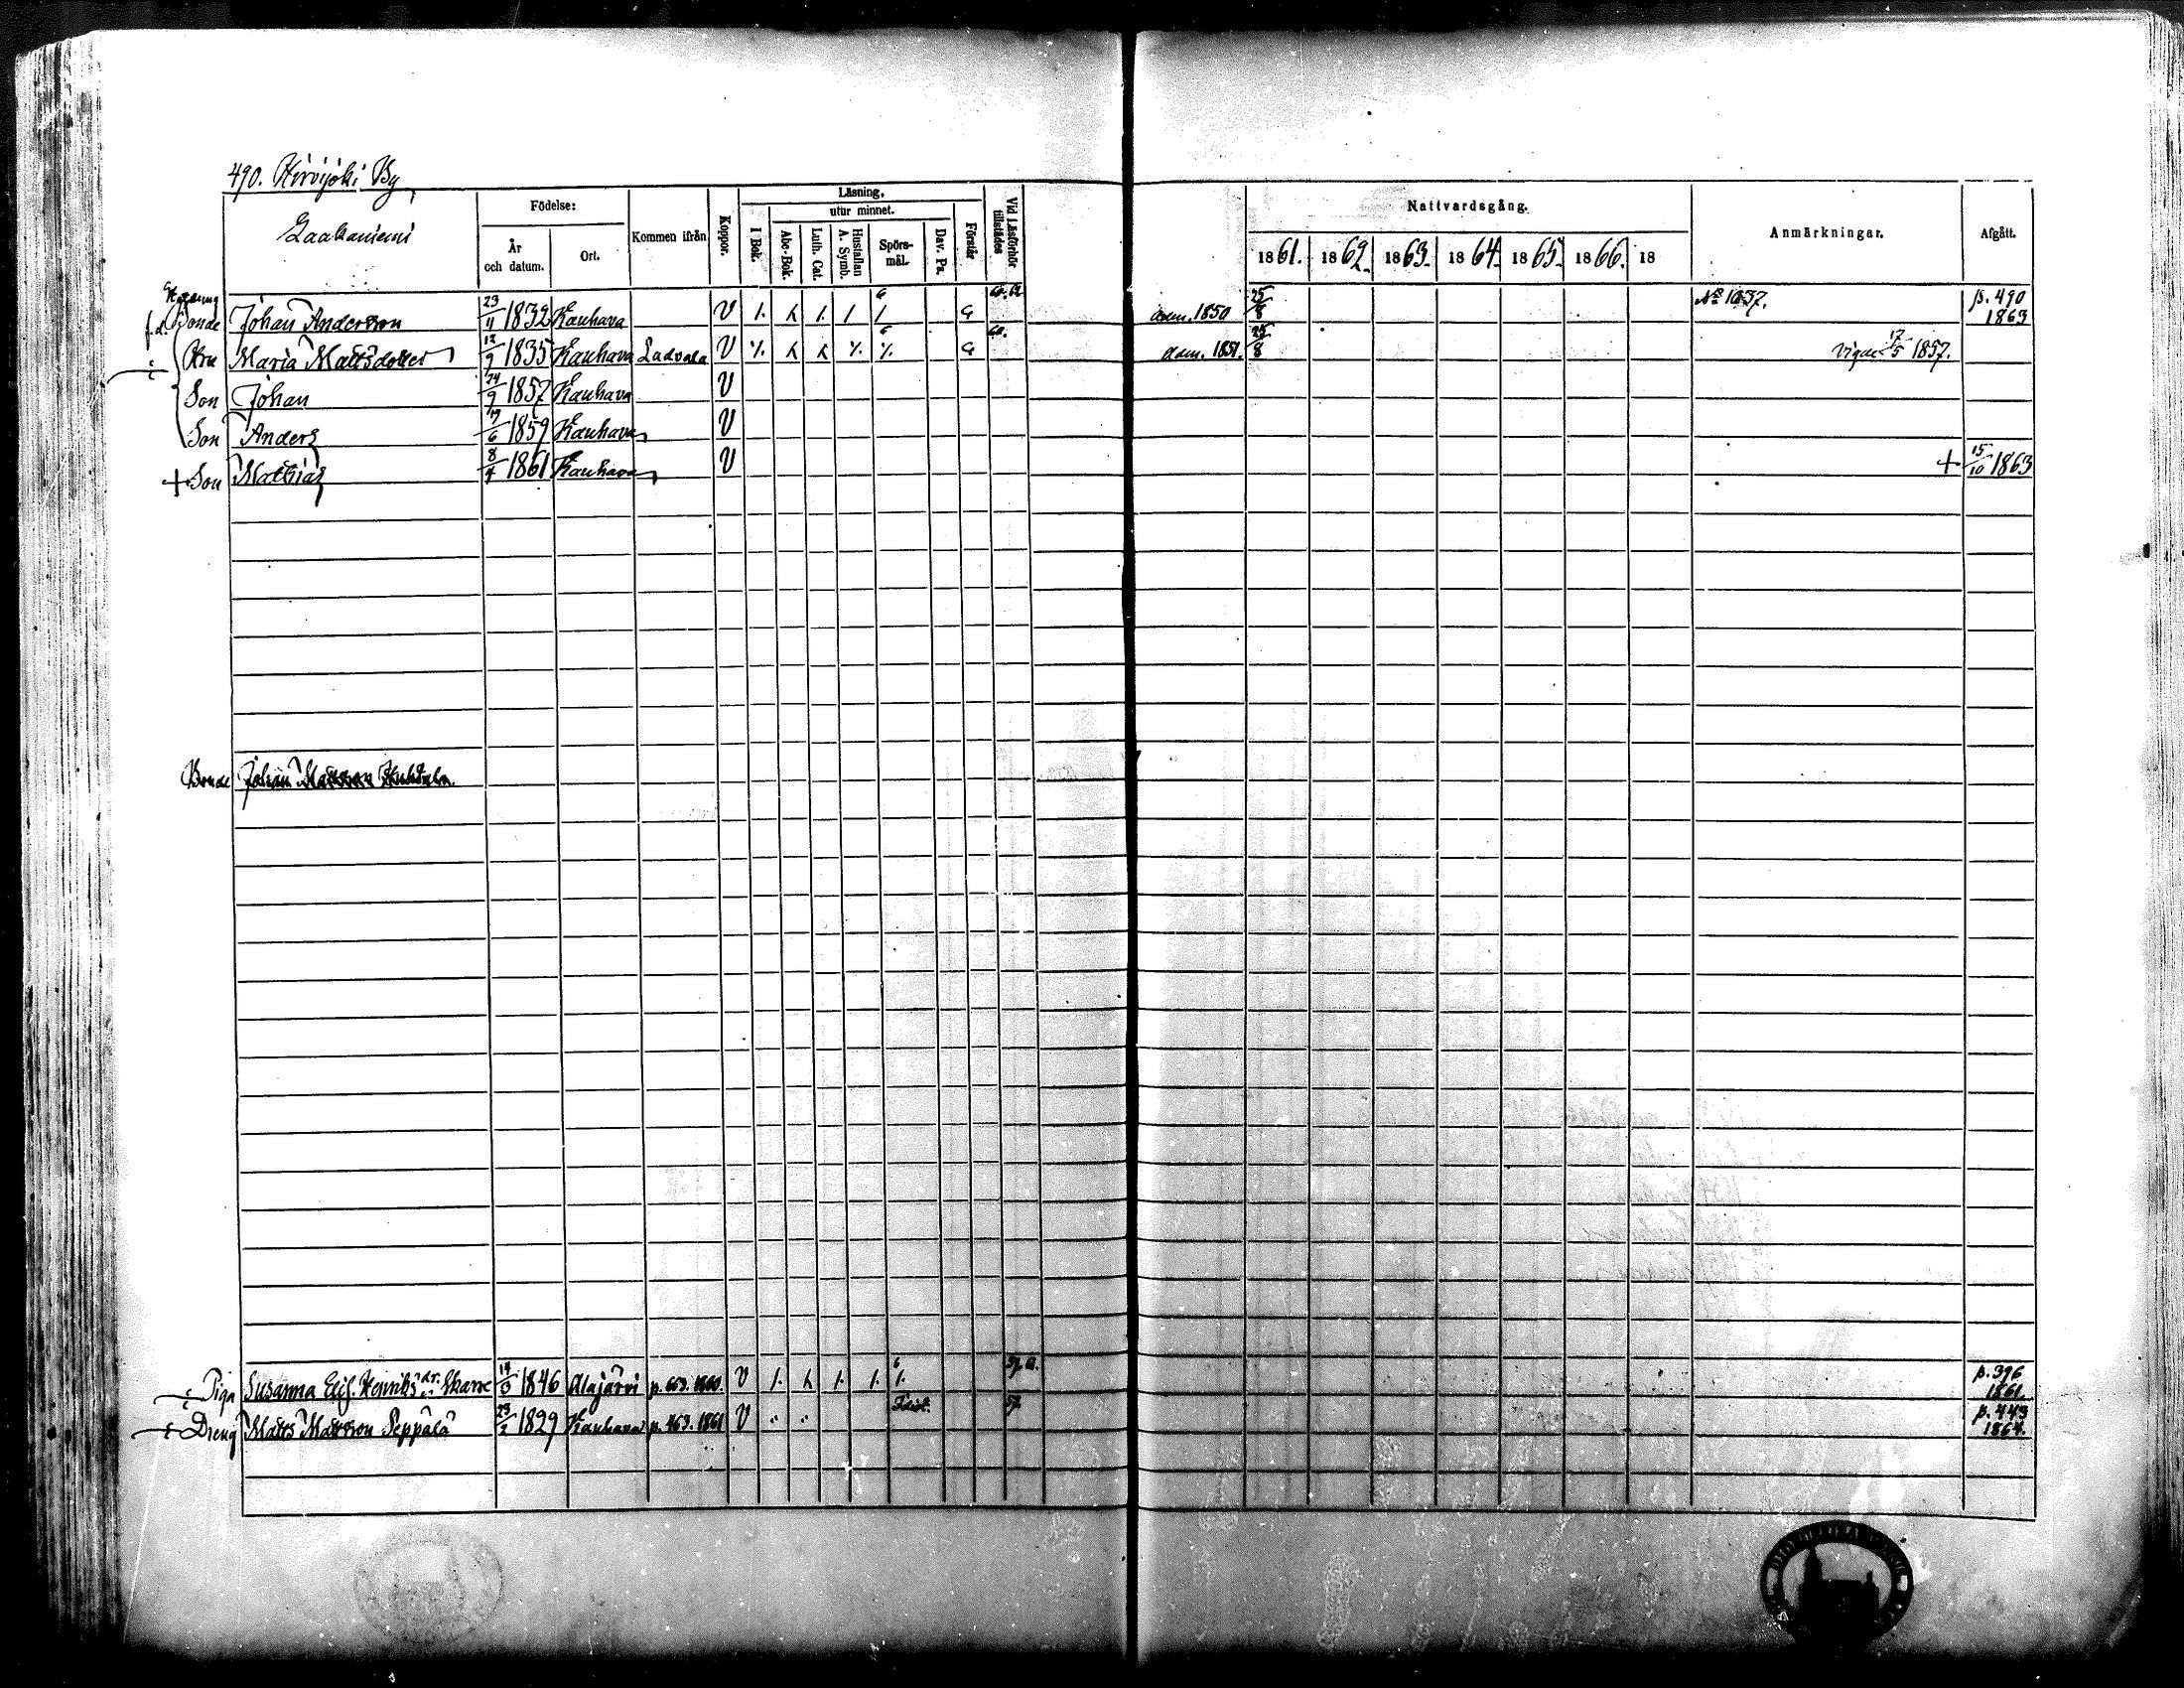 490. Hirvijoki By
Laakaniemi
Födelse:
År och datum.
Ort.
Kommen ifrån
Koppor.
Läsning.
I Bok.
utur minnet.
Abc-Bok.
Luth. Cat.
Hustaflan A. Symb.
Spörsmål.
Dav. Ps.
Förstår
Vid Läsförhör tillstädes
Nattvardsgång.
1861. 1862. 1863. 1864. 1865. 1866. 18
Anmärkningar.
Afgått.
f.d. Bonde Johan Andersson 23/11 1832 Kauhava V adm. 1850 25/8 p. 490 1863
Hru Maria Mattsdotter 12/9 1835 Kauhava Ladvala V adm. 1851. 25/8 Vigde 17/5 1857.
Son Johan 24/9 1857 Kauhava V
Son Anders 17/6 1859 Kauhava V
+ Son Mathias 8/4 1861 Kauhava V + 15/10 1863
Bonde Johan Mattsson
Piga Susanna Elis. Henriksdr. 1846 Alajärvi p. 663. 1860. V p. 396 1861
Dreng Matts Mattsson Seppälä 23/2 1829 Kauhava p. 463. 1861 V p. 443 1864.